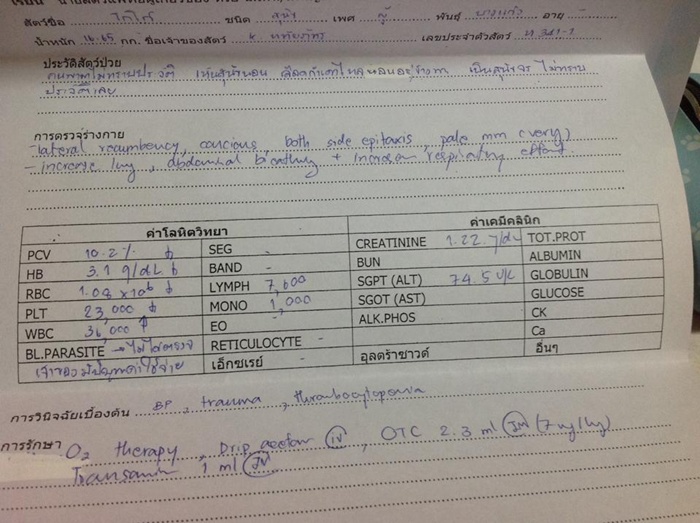 ชื่อสัตว์ โกโก้ ชนิด สุนัข เพศ ผู้ พันธุ์ อายุ
น้ำหนัก 16.65 กก. ชื่อเจ้าของสัตว์ เลขประจำตัวสัตว์ ท 341-1
ประวัติสัตว์ป่วย
ไม่ทราบประวัติ เห็นสุนัขนอน เลือดกำเดาไหล นอนอยู่ข้างทาง เป็นสุนัขจร ไม่ทราบ
ประวัติเลย
การตรวจร่างกาย
- lateral recumbency, concious, both side epitaxis, pale mm (very)
- increase lung, abdominal breathing + increase respiratory effort.
ค่าโลหิตวิทยา ค่าเคมีคลินิก
PCV 10.2% ↓ SEG - CREATININE 1.22 TOT.PROT
HB 3.1 g/dL ↓ BAND - BUN ALBUMIN
RBC 1.08 x10⁶ ↓ LYMPH 7,600 SGPT (ALT) 74.5 U/L GLOBULIN
PLT 23,000 ↓ MONO 1,000 SGOT (AST) GLUCOSE
WBC 36,000 ↑ EO - ALK.PHOS CK
BL.PARASITE → ไม่ได้ตรวจ RETICULOCYTE - Ca
เจ้าของมีปัญหาค่าใช้จ่าย เอ็กซเรย์ อุลตร้าซาวด์ อื่นๆ
การวินิจฉัยเบื้องต้น BP, trauma, thrombocytopenia
การรักษา O₂ therapy, Drip acetar IV, OTC 2.3 ml IV (7 mg/kg)
Transamin 1 ml IV